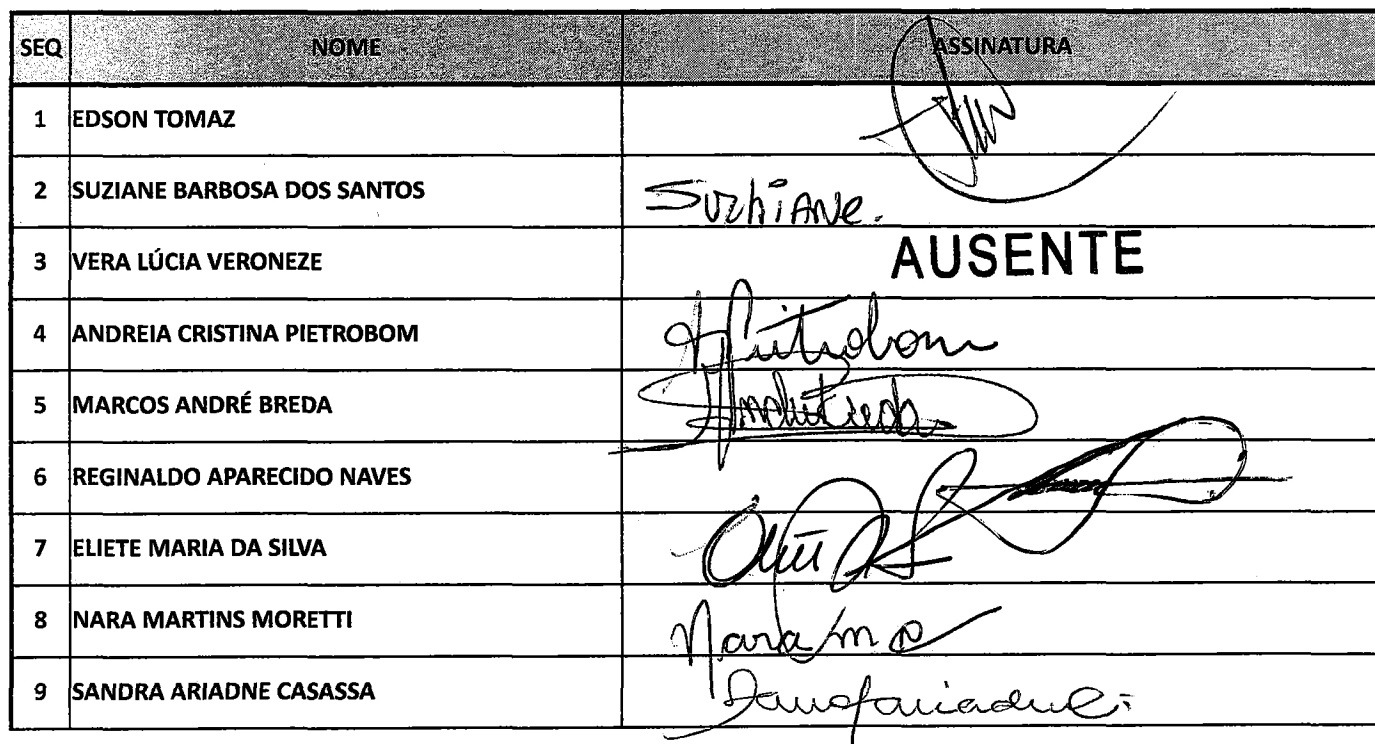 SEQ NOME ASSINATURA
1 EDSON TOMAZ
2 SUZIANE BARBOSA DOS SANTOS
3 VERA LÚCIA VERONEZE AUSENTE
4 ANDREIA CRISTINA PIETROBOM
5 MARCOS ANDRÉ BREDA
6 REGINALDO APARECIDO NAVES
7 ELIETE MARIA DA SILVA
8 NARA MARTINS MORETTI
9 SANDRA ARIADNE CASASSA